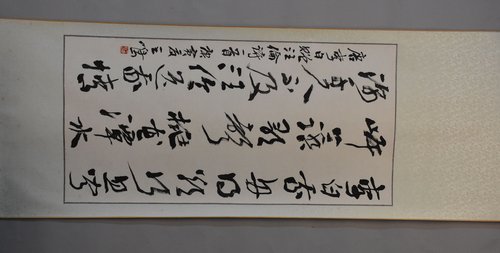 李白乘舟将欲行忽闻
岸上踏歌声桃花潭水
深千尺不及汪伦送我情
唐李白赠汪伦诗一首 庚寅夏